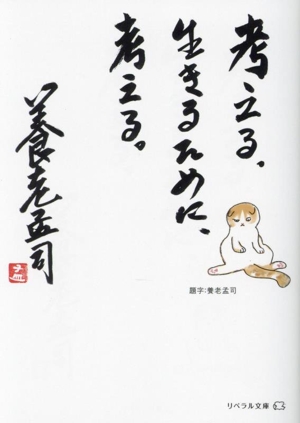 考える、
生きるために、
考える。
養老孟司
題字:養老孟司
リベラル文庫